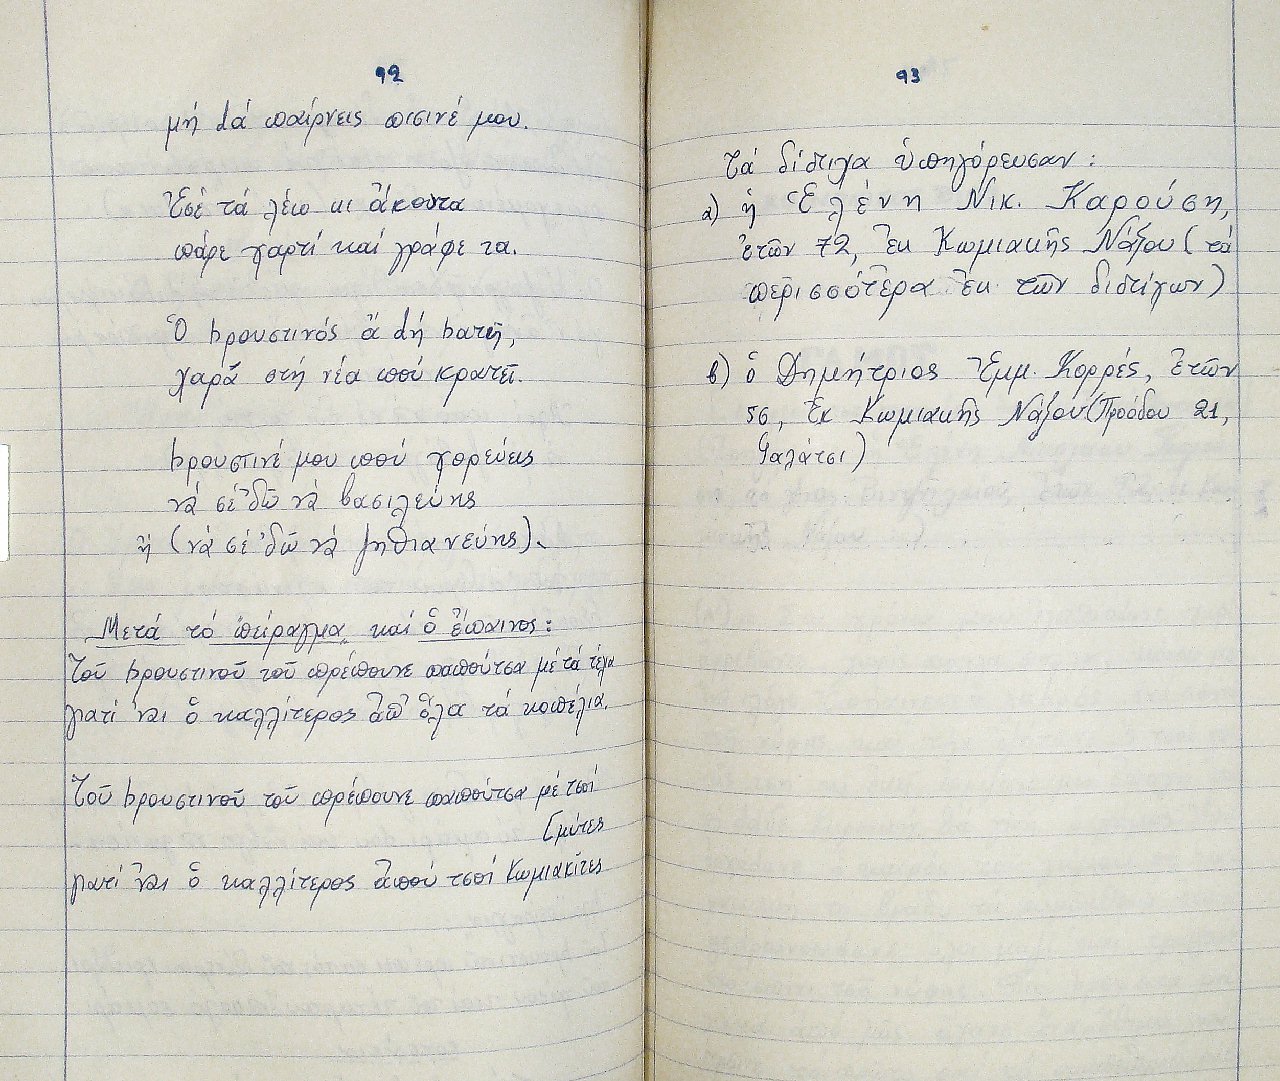 92
μή dά παίρνεις πισινέ μου.
Ἐσέ τά λέω κι ἄκουτα
πάρε χαρτί καί γράφε τα.
Ὁ bρουστινός ἄ dή bατεῖ,
χαρά στή νέα πού κρατεῖ.
bρουστινέ μου πού χορεύεις
νά σέ ἰδῶ νά βασιλεύης
ἤ (νά σέ ἰδῶ νά
Μετά τό "πείραγμα" καί ὁ ἔπαινος:
Τοῦ bρουστινοῦ τοῦ πρέπουνε παπούτσα μέ τά τέλα
γιατί 'ναι ὁ καλλίτερος ἀπ' ὅλα τά κοπέλια.
Τοῦ bρουστινοῦ τοῦ πρέπουνε παπούτσα μέ τσοί
[μύτες
γιατί 'ναι ὁ καλλίτερος ἀπού τσοί Κωμιακίτες
93
Τά δίστιχα ὑπηγόρευσαν:
α) ἡ Ἑλένη Νικ. Καρούση,
ἐτῶν 72, ἐκ Κωμιακῆς Νάξου (τά
περισσότερα ἐκ τῶν διστίχων)
β) ὁ Δημήτριος Ἐμμ. Κορρές, ἐτῶν
56, ἐκ Κωμιακῆς Νάξου (Προόδου 21,
Γαλάτσι)